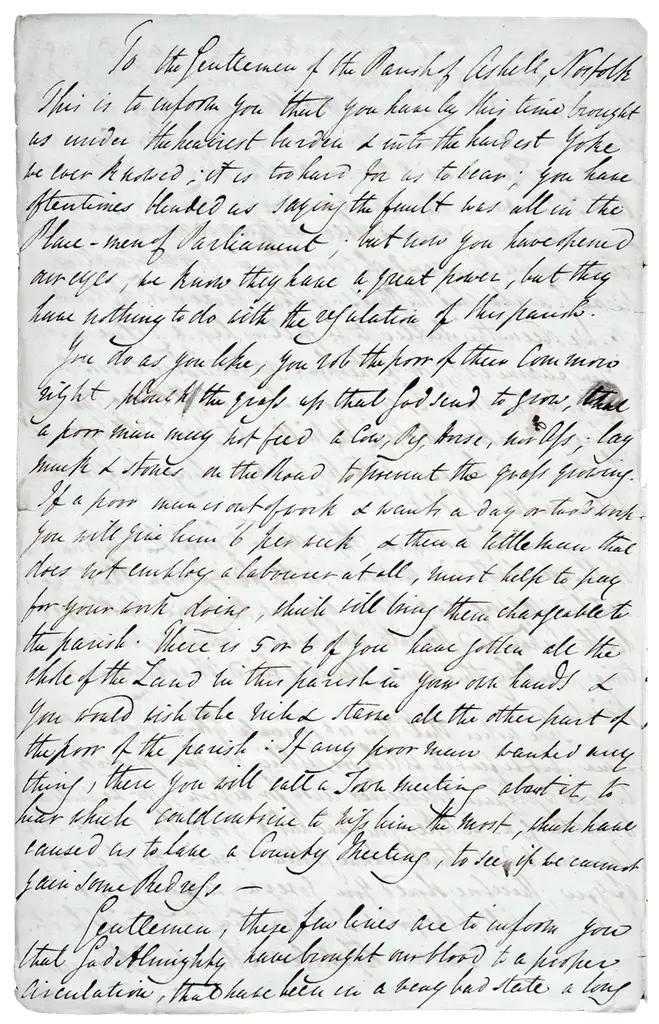 To the Gentlemen of the Parish of Ashell, Norfolk
This is to inform you that you have by this time brought
us under the heaviest burden & into the hardest Yoke
we ever knowed; it is too hard for us to bear; you have
oftentimes blinded us saying the fault was all in the
Place-men of Parliament; but now you have opened
our eyes, we know they have a great power, but they
have nothing to do with the regulation of this parish.
You do as you like, you rob the poor of their Common
right, plough the grass up that God send to grow, that
a poor man may not feed a Cow, Pig, Horse, nor Ass; lay
muck & stones on the Road to prevent the grass growing.
If a poor man is out of work & wants a day or two's work
you will give him 6 per week, & then a little man that
does not employ a labourer at all, must help to pay
for your work doing, which will bring them chargeable to
the parish. There is 5 or 6 of you have gotten all the
whole of the Land in this parish in your own hands &
you would wish to be rich & starve all the other part of
the poor of the parish: If any poor man wanted any
thing, then you will call a Town meeting about it, to
hear which could contrive to hiss him the most, which have
caused us to have a County Meeting, to see if we cannot
gain some Redress —
Gentlemen, these few lines are to inform you
that God Almighty have brought our blood to a proper
circulation, that have been in a very bad state a long